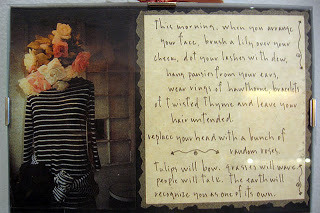 This morning, when you arrange
your face, brush a lily over your
cheek, dot your lashes with dew,
hang pansies from your ears,
wear rings of hawthorne, bracelets
of twisted Thyme and leave your
hair untended.
replace your head with a bunch of
random roses.
Tulips will bow, grasses will wave
people will talk. The earth will
recognize you as one of its own.